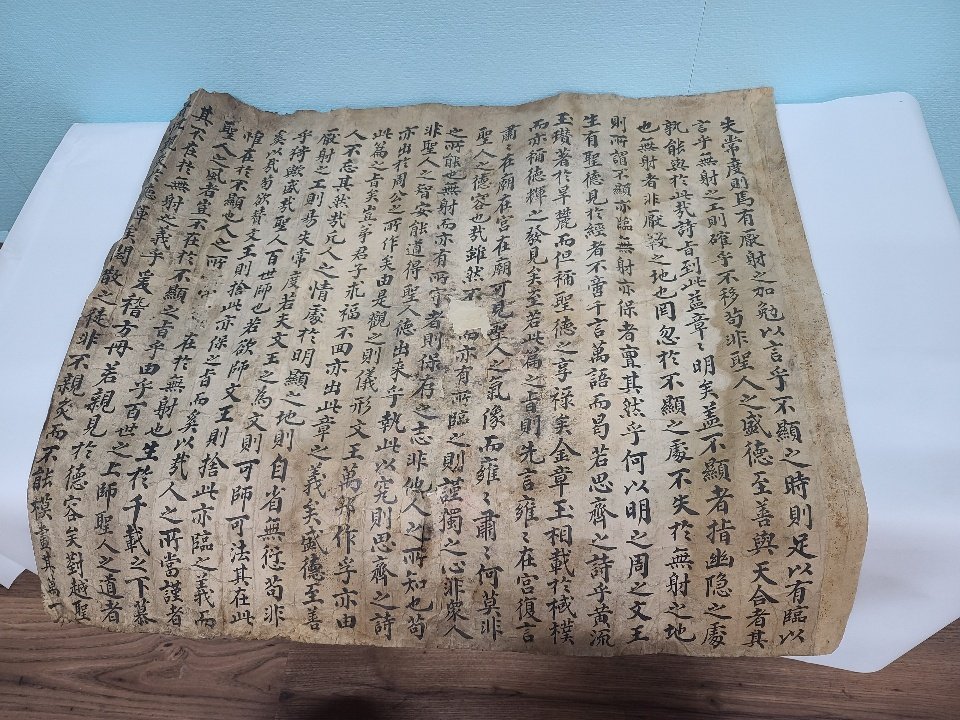 夫常度則焉有厭射之加勉以言乎不顯之時則足以有臨以
言乎無射之工則確乎不移苟非聖人之盛德至善與天合者其
孰能與於此哉詩旨到此益章〻明矣盖不顯者指幽隐之處
也無射者非厭敎之地也罔忽於不顯之處不失於無射之地
則所謂不顯亦臨無射亦保者亶其然乎何以明之周之文王
生有聖德見於經者不啻千言萬語而曷若思齊之詩乎黃流
玉瓚著於旱麓而但稱聖德之享祿矣金章玉相載於棫樸
而亦稱德輝之發見矣至若此篇之旨則先言雍〻在宮復言
肅〻在廟在宮在廟可見聖人之氣像而雍〻肅〻何莫非
聖人之德容也哉雖然不 而亦有所臨之則謹獨之心非衆人
之所能也無射而亦有所守者則保存之志非他人之所知也苟
非聖人之智安能道得聖人德出來乎執此以究則思齊之詩
亦出於周公之所作矣由是觀之則儀形文王萬邦作孚亦由
此篇之旨矣豈弟君子求福不回亦出此章之義矣盛德至善
人不忘其然哉凡人之情處於明顯之地則自省無愆苟非
厭射之工則焉夫常度若夫文王之爲文則可師可法其在此
乎猗歟盛哉聖人百世師也若欲師文王則捨此亦臨之義而
奚以哉苟欲替文王則捨此亦保之旨而奚以哉人之所當謹者
惟在於不顯也人之所 在於無射也生於千載之下慕
聖人之風者豈不在於不顯之旨乎由乎百世之上師聖人之道者
其不在於無射之義乎爰稽方冊若親見於德容矣對越聖
閎散之徒非不親炙而不能模